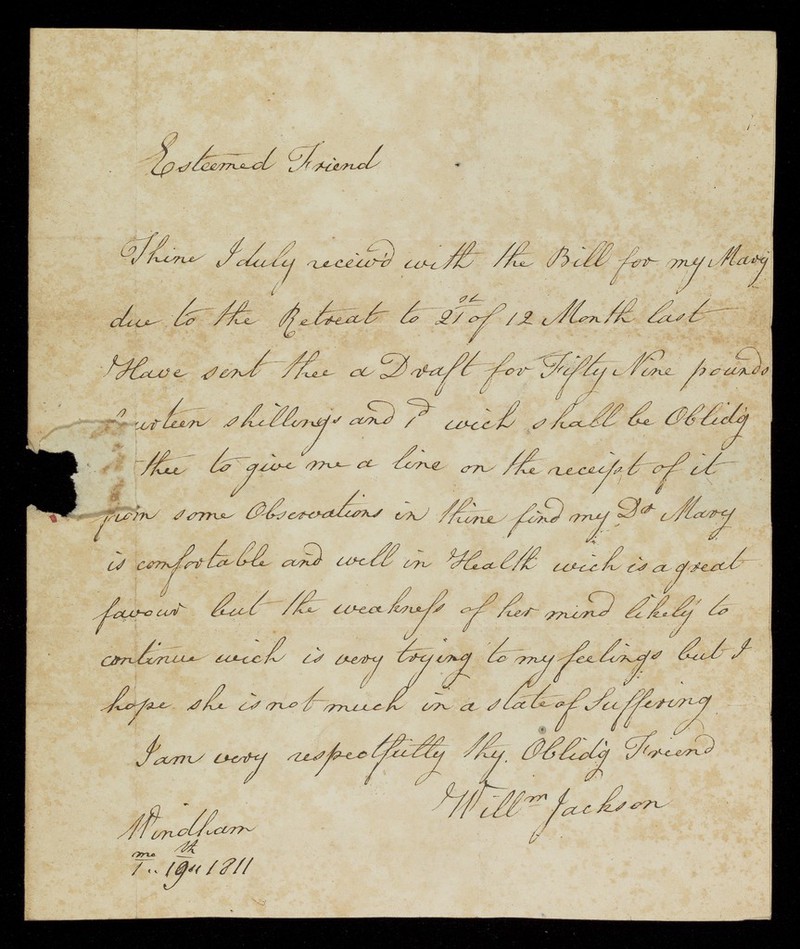 Esteemed Friend
Thine I duly receiv'd with the Bill for my Mary
due to the Retreat to 21st of 12 Month last
Have sent thee a Draft for Fifty Nine pounds
fourteen shillings and 1d wich shall be Oblidg
thee to give me a line on the receipt of it
from some Observations in thine find my Dr Mary
is comfortable and well in Health wich is a great
favour but the weakness of her mind likely to
continue wich is very trying to my feelings but I
hope she is not much in a state of Suffering
I am very respectfully thy. Oblidg Friend
Willm Jackson
Windham
1mo 19th 1811